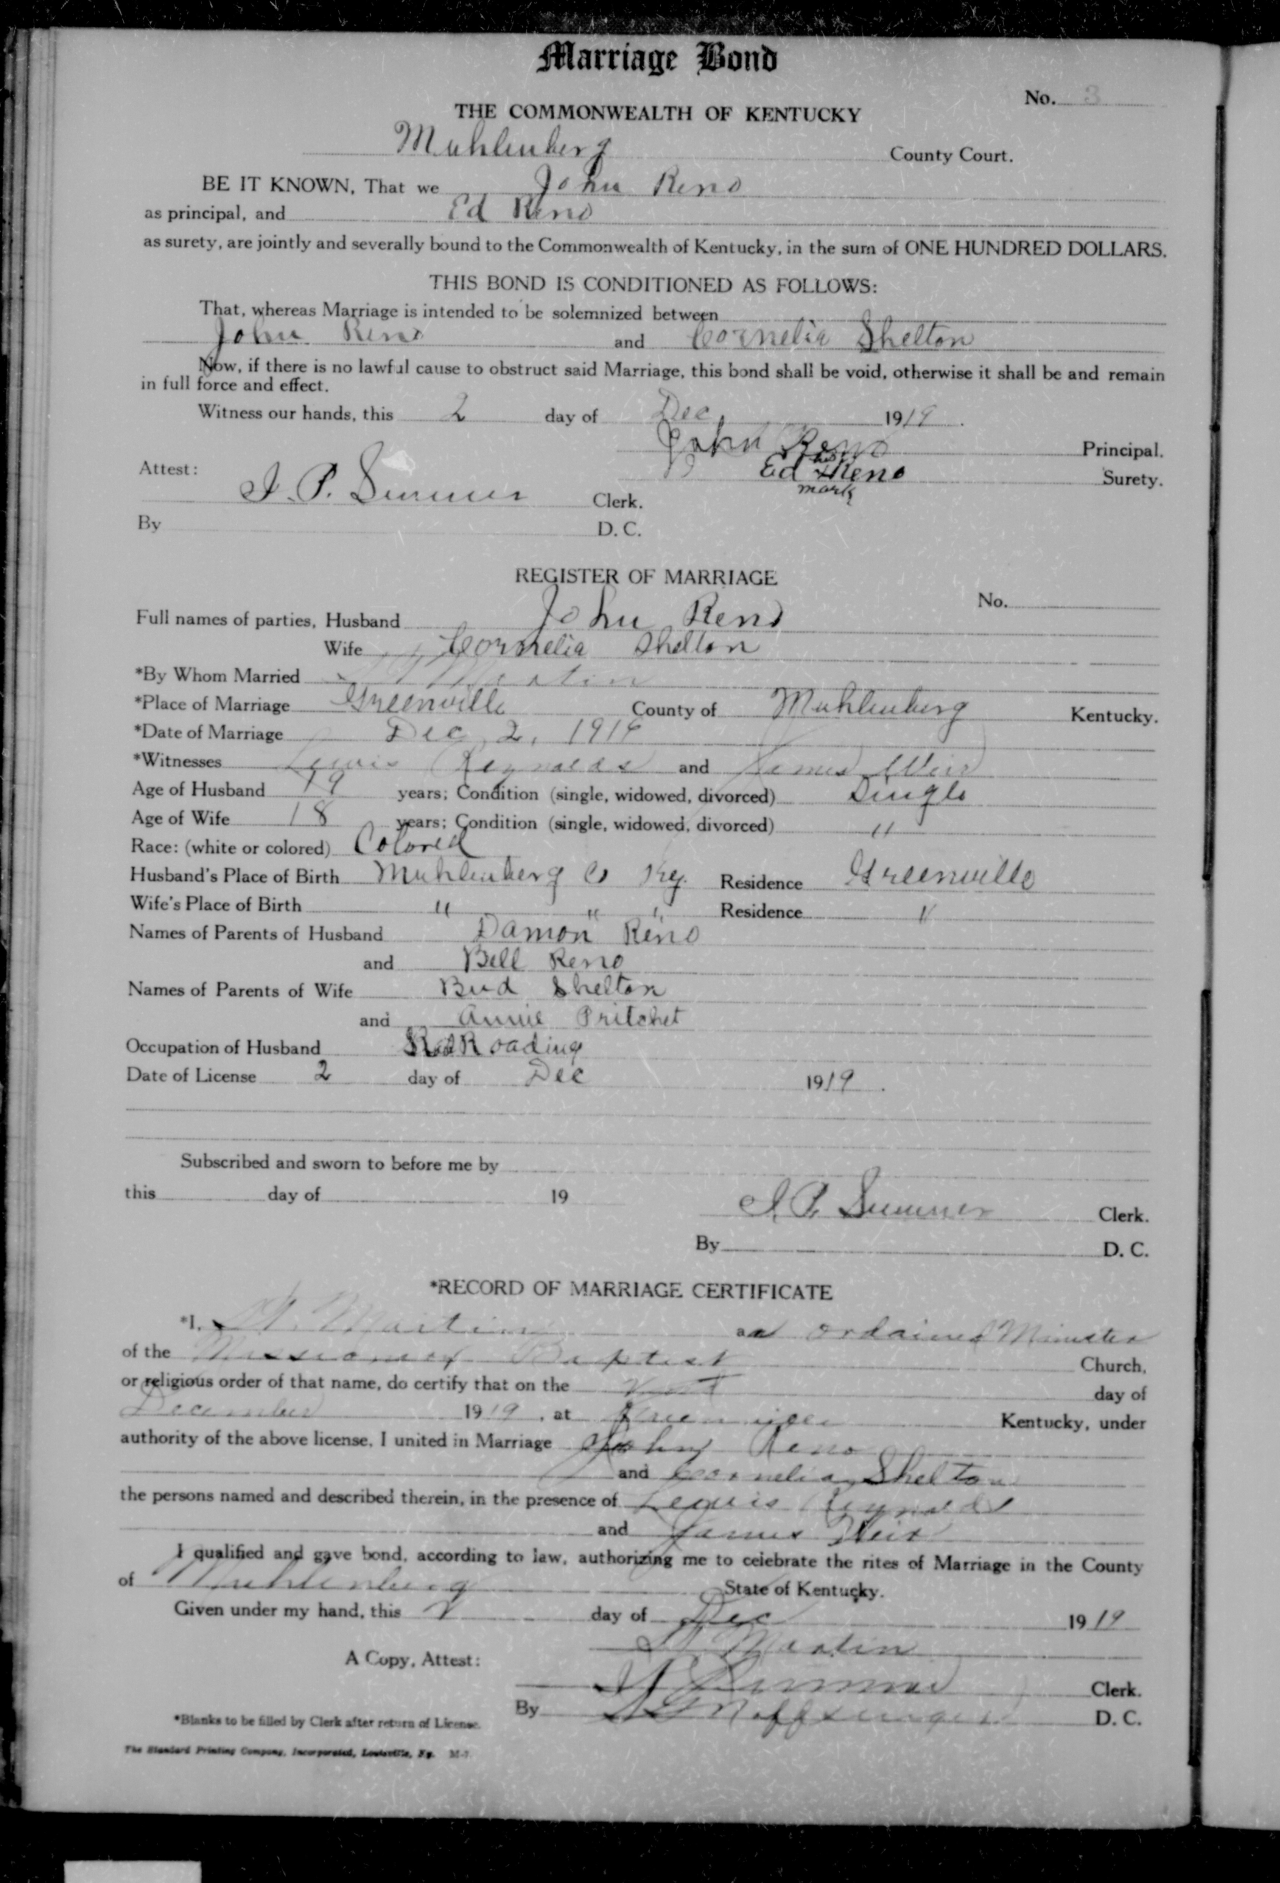 Marriage Bond
No. 3
THE COMMONWEALTH OF KENTUCKY
Muhlenberg County Court.
BE IT KNOWN, That we John Reno
as principal, and Ed Reno
as surety, are jointly and severally bound to the Commonwealth of Kentucky, in the sum of ONE HUNDRED DOLLARS.
THIS BOND IS CONDITIONED AS FOLLOWS:
That, whereas Marriage is intended to be solemnized between
John Reno and Cornelia Shelton
Now, if there is no lawful cause to obstruct said Marriage, this bond shall be void, otherwise it shall be and remain
in full force and effect.
Witness our hands, this 2 day of Dec, 1919.
John Reno Principal.
his
Attest: Ed x Reno Surety.
mark
Clerk.
By D. C.
REGISTER OF MARRIAGE
No.
Full names of parties, Husband John Reno
Wife Cornelia Shelton
*By Whom Married Martin
*Place of Marriage Greenville County of Muhlenberg Kentucky.
*Date of Marriage Dec 2, 1919
*Witnesses Lewis Reynolds and James Weir
Age of Husband 19 years; Condition (single, widowed, divorced) Single
Age of Wife 18 years; Condition (single, widowed, divorced) "
Race: (white or colored) Colored
Husband's Place of Birth Muhlenberg Co Ky. Residence Greenville
Wife's Place of Birth " " " Residence "
Names of Parents of Husband Damon Reno
and Bell Reno
Names of Parents of Wife Bud Shelton
and Annie Pritchet
Occupation of Husband Roading
Date of License 2 day of Dec 1919.
Subscribed and sworn to before me by
this day of 19
Clerk.
By D. C.
*RECORD OF MARRIAGE CERTIFICATE
*I, Martin an ordained Minister
of the Missionary Baptist Church,
or religious order of that name, do certify that on the day of
December 1919, at Greenville Kentucky, under
authority of the above license, I united in Marriage John Reno
and Cornelia Shelton
the persons named and described therein, in the presence of Lewis Reynolds
and James Weir
I qualified and gave bond, according to law, authorizing me to celebrate the rites of Marriage in the County
of Muhlenberg State of Kentucky.
Given under my hand, this 2 day of Dec 1919
Martin
A Copy, Attest:
Clerk.
By D. C.
*Blanks to be filled by Clerk after return of License.
The Standard Printing Company, Incorporated, Louisville, Ky.